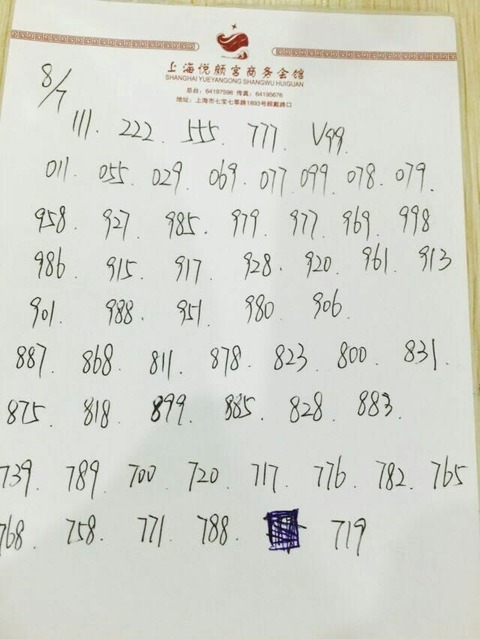 上海悦颜宫商务会馆
SHANGHAI YUEYANGONG SHANGWU HUIGUAN
总台: 64197596 传真: 64195676
地址: 上海市七宝七莘路1693号顾戴路口
8/7
111. 222. 555. 777. V99.
011. 055. 029. 069. 077. 099. 078. 079.
958. 927. 985. 979. 977. 969. 998
986. 915. 917. 928. 920. 961. 913
901. 988. 951. 980. 906.
887. 868. 811. 878. 823. 800. 831.
875. 818. 899. 885. 828. 883.
739. 789. 700. 720. 717. 776. 782. 765
768. 758. 771. 788. 719